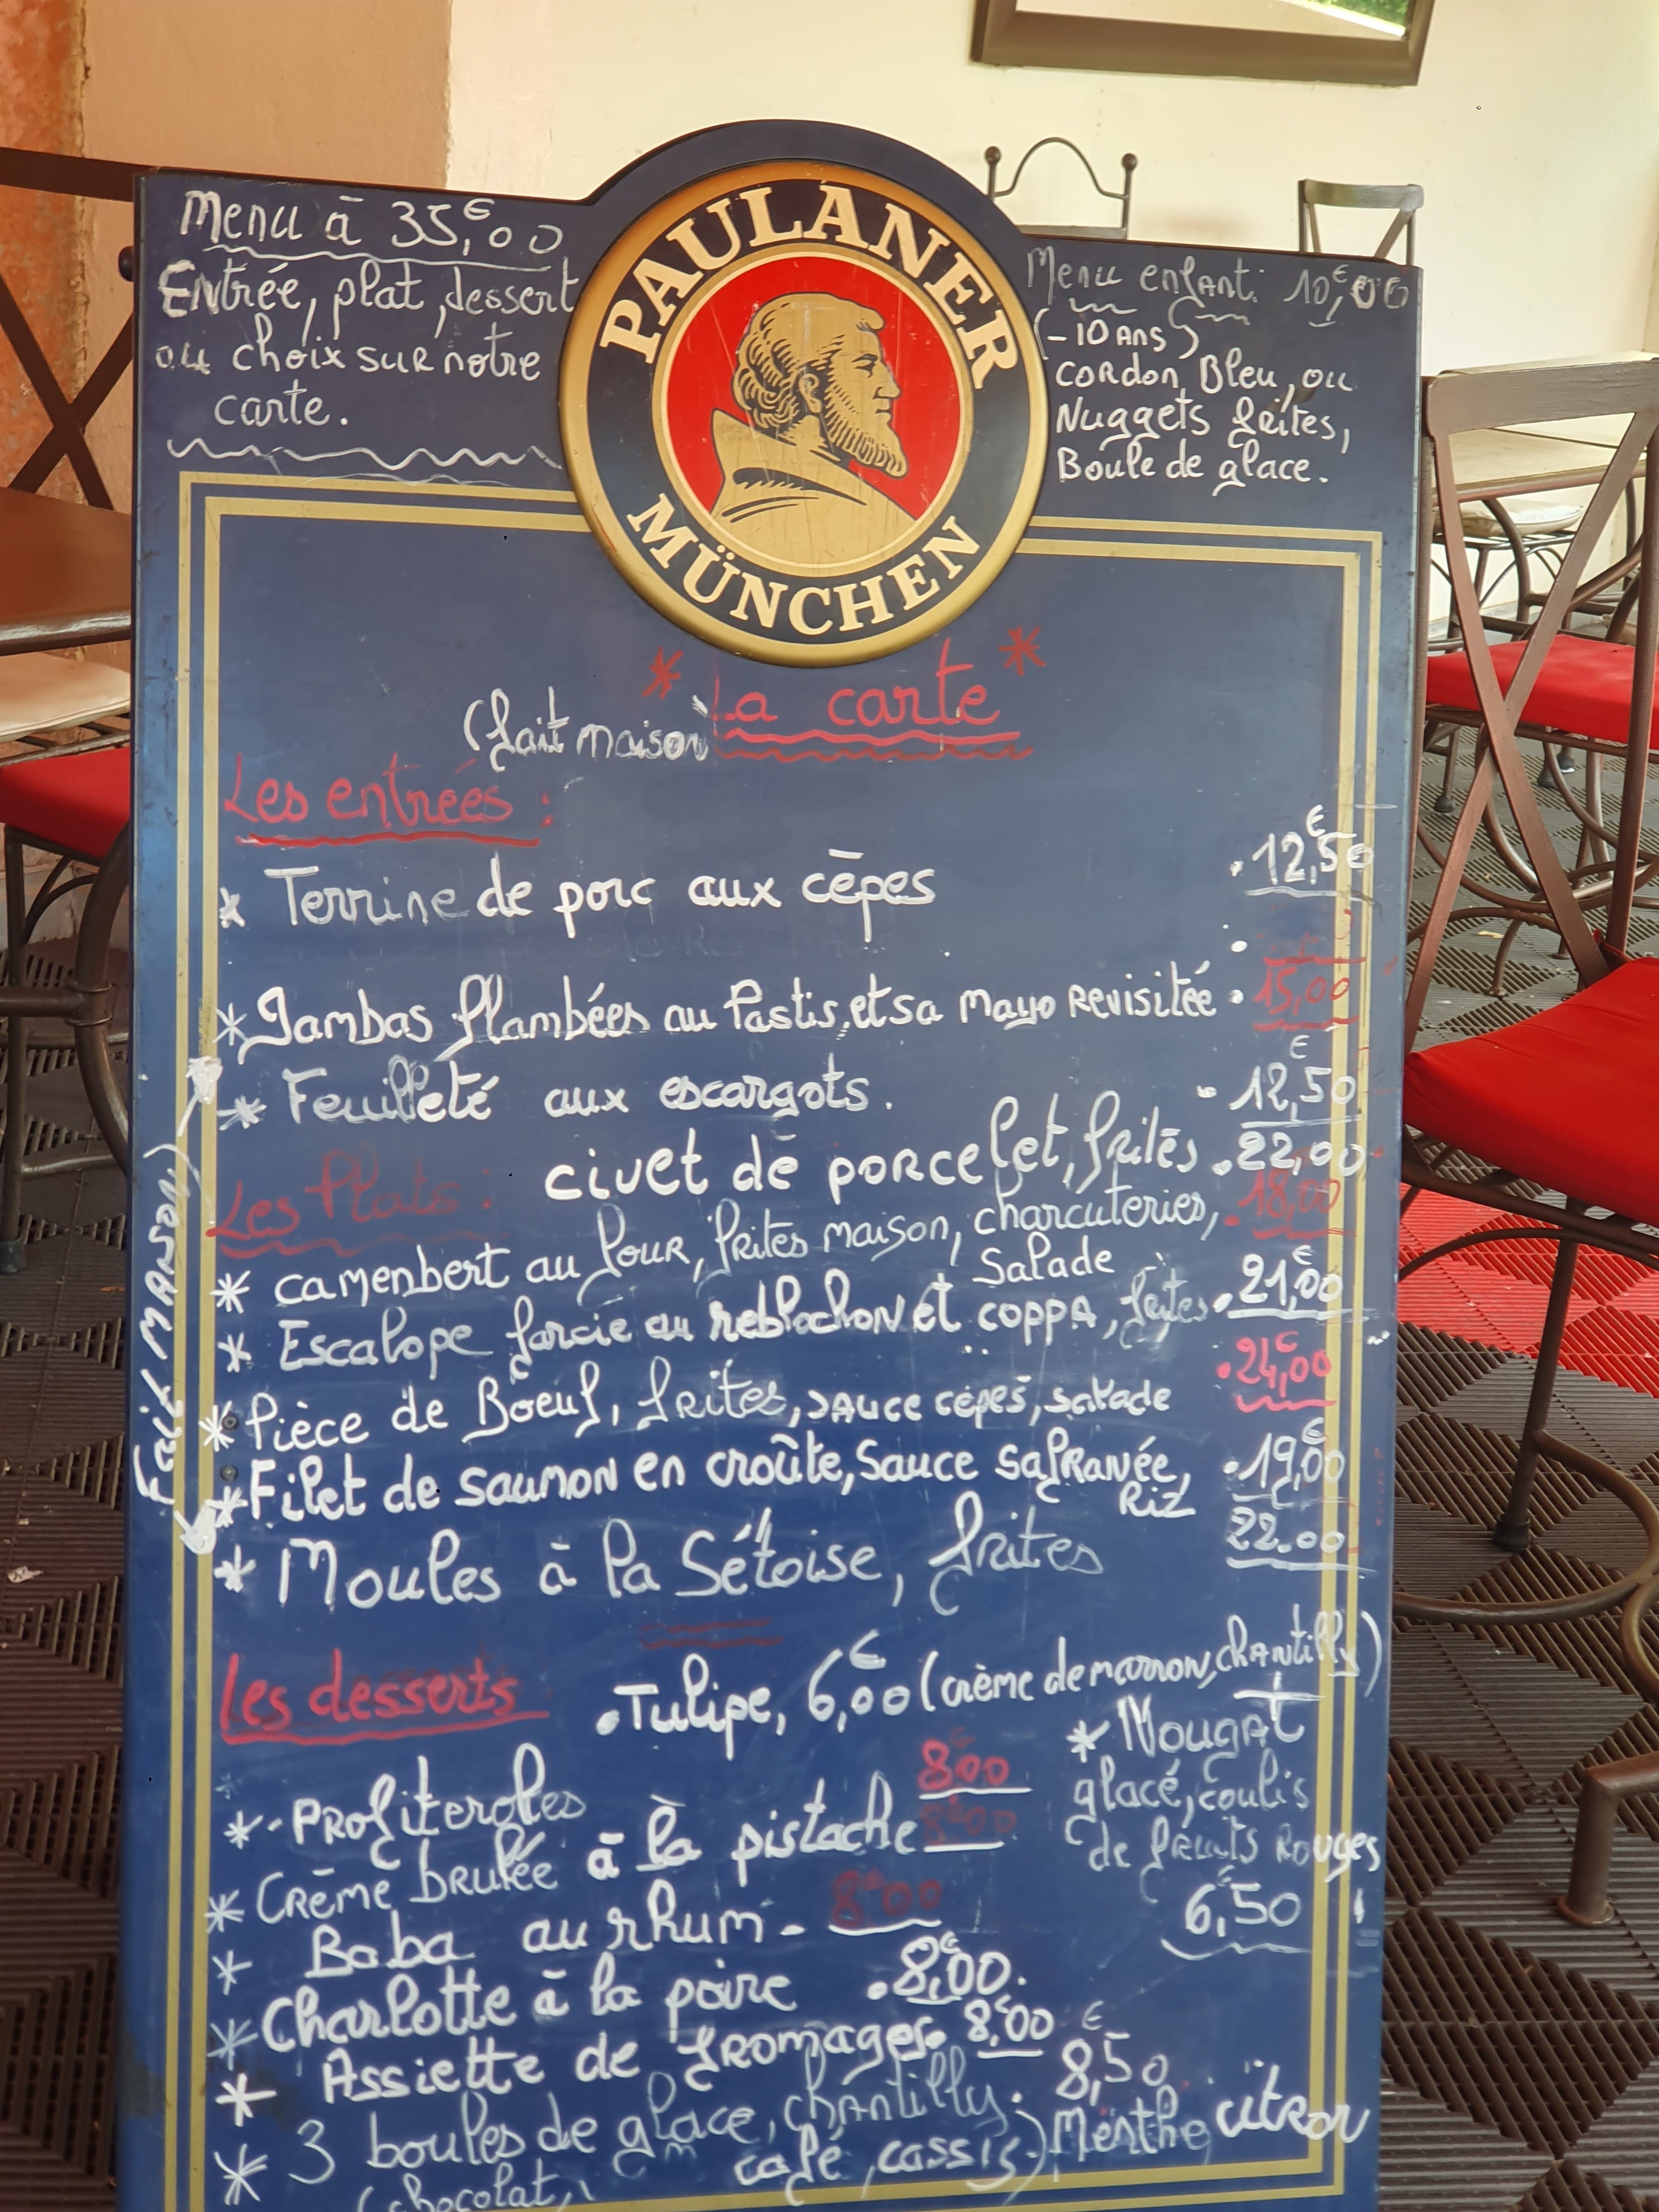 Menu à 35,00€
Entrée, plat, dessert
au choix sur notre
carte.
PAULANER
MÜNCHEN
Menu enfant: 10,00€
(-10 Ans)
cordon Bleu, ou
Nuggets frites,
Boule de glace.
* La carte *
(fait maison)
Les entrées :
* Terrine de porc aux cèpes . 12,50€
* Gambas flambées au Pastis, et sa Mayo Revisitée . 15,00
* Feuilleté aux escargots. - 12,50€
Les Plats : civet de porcelet, frites . 22,00
* camenbert au four, frites maison, charcuteries, - 18,00
Salade
* Escalope farcie au reblochon et coppa, frites . 21,00€
* Pièce de Boeuf, frites, sauce cèpes, salade . 24,00€
* Filet de saumon en croûte, Sauce safranée, . 19,00€
Riz
* Moules à la Sétoise, frites 22.00
Fait MAISON
Les desserts
. Tulipe, 6,00€ (crème de marron, chantilly)
* Nougat
glacé, coulis
de fruits Rouges
6,50€
* - Profiteroles 8€00
* Crème brulée à la pistache 8€00
* Baba au rhum - 8€00
* Charlotte à la poire . 8,00€.
* Assiette de fromages. 8,00€
* 3 boules de glace, chantilly. 8,50€
(chocolat, café, cassis.) Menthe citron